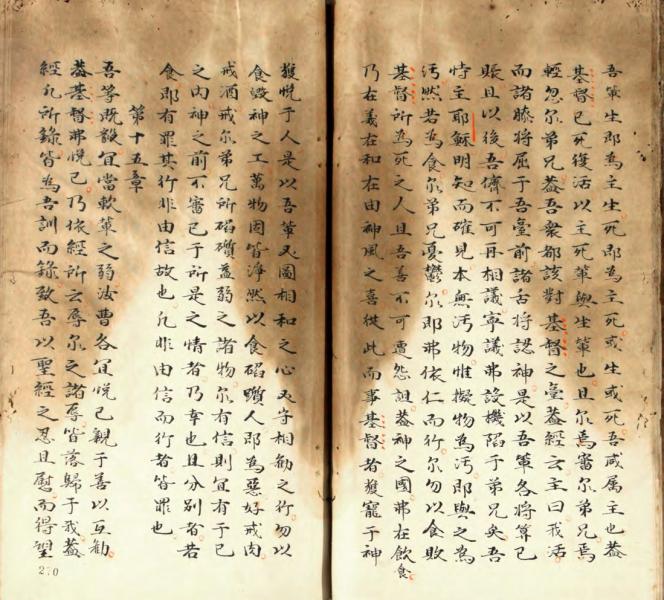 吾輩生即為主生死即為主死或生或死吾咸屬主也蓋
基督已死復活以主死輩與生輩也且尔焉審尔弟兄焉
輕忽尔弟兄蓋吾衆都該對基督之臺蓋經云主曰我活
而諸膝將屈于吾臺前諸舌將認神是以吾輩各將算己
賬且以後吾儕不可再相議寧議弗設機陷于弟兄矣吾
恃主耶穌明知而確見本無汚物惟擬物為汚即與之為
汚然若為食尔弟兄憂鬱尔即弗依仁而行尔勿以食敗
基督所為死之人且吾善不可遭怨詛蓋神之國弗在飲食
乃在義在和在由神風之喜從此而事基督者獲寵于神
獲悅于人是以吾輩又圖相和之心又守相勸之行勿以
食毀神之工萬物固皆淨然以食磖躓人即為惡好戒肉
戒酒戒尔弟兄所磖躓蓋弱之諸物尔有信則宜有于己
之内神之前不審己于所是之情者乃幸也且分別者若
食即有罪其行非由信故也凡非由信而行者皆罪也
第十五章
吾等既毅宜當軟輩之弱汝曹各宜悅己親于善以互勸
蓋基督弗悅己乃依經所云辱尔之諸辱皆落歸于我蓋
經凡所錄皆為吾訓而錄致吾以聖經之忍且慰而得望
270